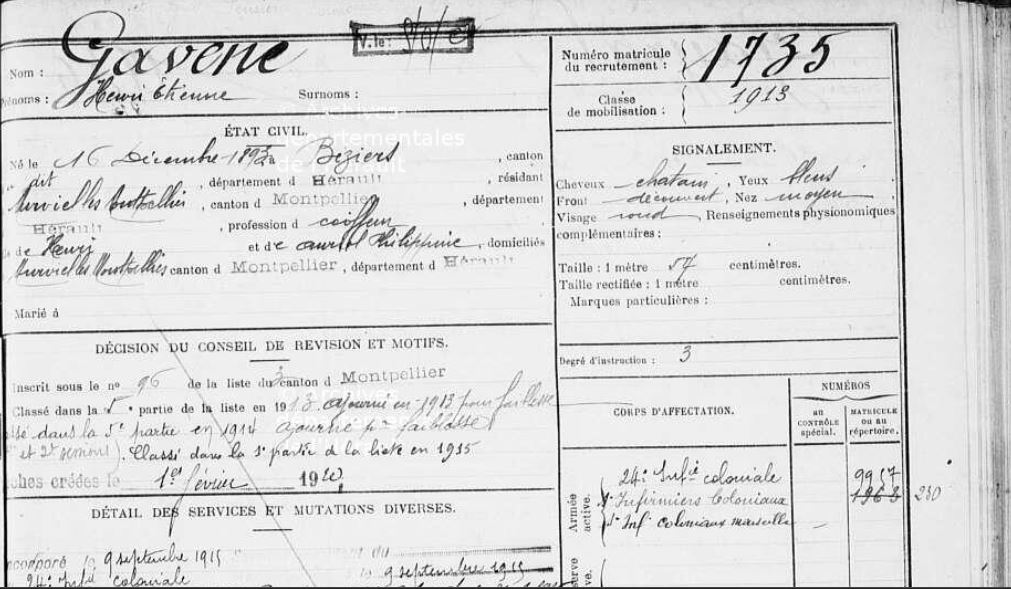 V. le:
Nom : Gavene
Prénoms : Henri Étienne Surnoms :
Numéro matricule
du recrutement : 1735
Classe
de mobilisation : 1913
ÉTAT CIVIL.
Né le 16 Décembre 1893, à Béziers, canton
dit, département d Hérault, résidant
Murviel les Montpellier, canton d Montpellier, département
Hérault, profession d coiffeur
de Henri et de Auriol Philippine, domiciliés
Murviel les Montpellier canton d Montpellier, département d Hérault
Marié à
SIGNALEMENT.
Cheveux chatain, Yeux bleus
Front découvert, Nez moyen
Visage rond, Renseignements physionomiques
complémentaires :
Taille : 1 mètre 54 centimètres.
Taille rectifiée : 1 mètre centimètres.
Marques particulières :
DÉCISION DU CONSEIL DE REVISION ET MOTIFS.
Inscrit sous le nº 96 de la liste du 3 canton d Montpellier
Classé dans la 5e partie de la liste en 1913. ajourné en 1913 pour faiblesse
dans la 5e partie en 1914 ajourné pr faiblesse
et 2e . Classé dans la 1e partie de la liste en 1915
1er février 19
Degré d'instruction : 3
DÉTAIL DES SERVICES ET MUTATIONS DIVERSES.
Incorporé le 9 septembre 1915 du
le 9 septembre 1915
24e Infie coloniale
CORPS D'AFFECTATION.
NUMÉROS
au
CONTRÔLE
spécial.
MATRICULE
ou au
répertoire.
Armée
active.
24e Infie coloniale 9957
Infirmiers Coloniaux 1963 230
Inf coloniaux marseille
Archives
départementales
de l'Hérault